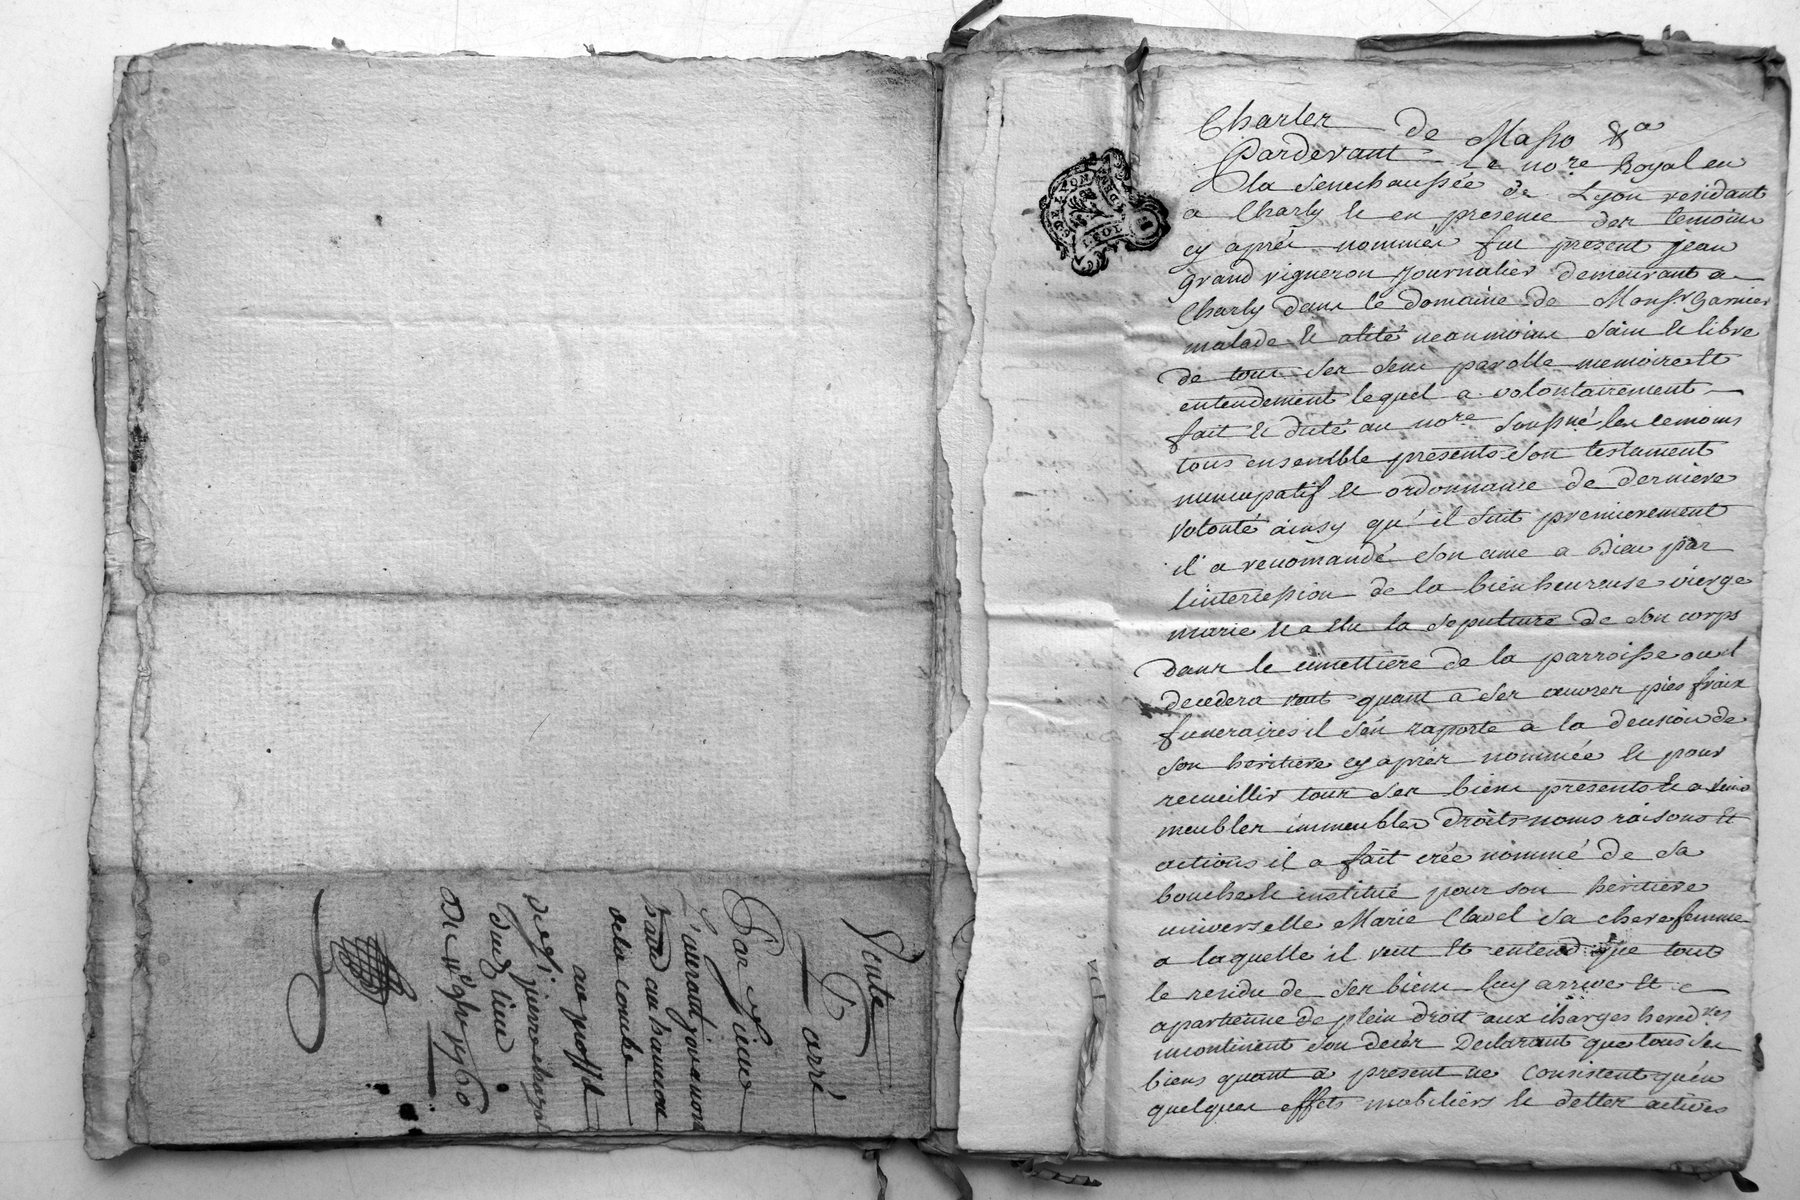 Vente
Carré
Par Sieur
Laurant jovanon
au hameau
dela combe
au proffit
de
Dud lieu
Du 11e 9bre 1760
Charles de Masso &a
Pardevant Le nore Royal en
la Senechaussée de Lyon residant
a Charly et en presence des temoins
cy aprés nommés fut present jean
grand vigneron journalier demeurant a
Charly dans le domaine de Monsr Garnier
malade et alité neanmoins sain et libre
de tous ses sens parolle memoire et
entendement lequel a volontairement
fait et dicté au nore soussné les temoins
tous ensemble presents son testament
nuncupatif et ordonnance de derniere
volonté ainsy qu'il suit premierement
il a recomandé son ame a Dieu par
l'intercession de la bienheureuse vierge
marie et a elu la sepulture de son corps
dans le cimettiere de la parroisse ou il
decedera quant a ses œuvres pies fraix
funeraires il s'en raporte a la decision de
son heritiere cy aprés nommée et pour
recueillir tous ses biens presents et a venir
meubles immeubles droits noms raisons et
actions il a fait créé nommé de sa
bouche et institué pour son heritiere
universelle Marie Clavel sa chere femme
a laquelle il veut et entend que tout
le rendu de ses biens luy arrive et
apartienne de plein droit aux charges heredres
incontinent son decés Declarant que tous ses
biens quant a present ne consistent qu'en
quelques effets mobiliers et dettes actives